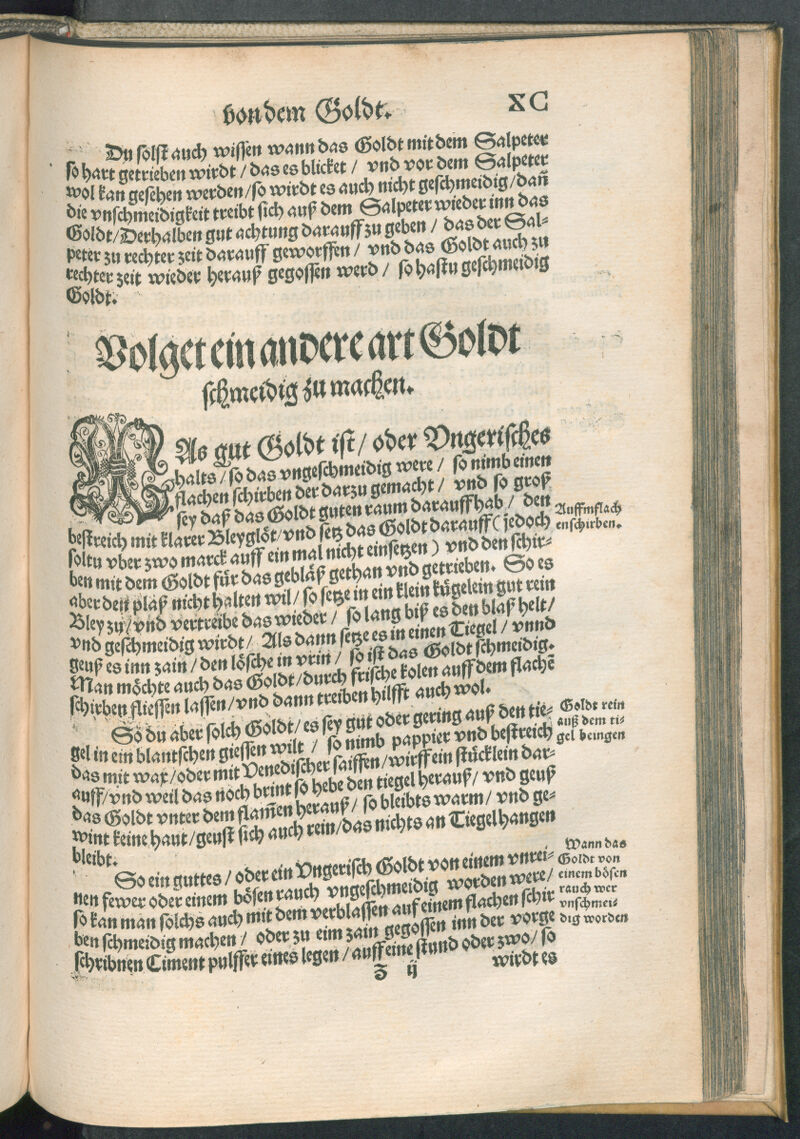 von dem Goldt.
XC
Du solst auch wissen wann das Goldt mit dem Salpeter
so hart getrieben wirdt / das es blicket / vnd vor dem Salpeter
wol kan gesehen werden/so wirdt es auch nicht geschmeidig/dañ
die vnschmeidigkeit treibt sich auß dem Salpeter wieder inn das
Goldt/Derhalben gut achtung darauff zu geben / das der Sal-
peter zu rechter zeit darauff geworffen / vnd das Goldt auch zu
rechter zeit wieder herauß gegossen werd / so hastu geschmeidig
Goldt.
Volget ein andere art Goldt
schmeidig zu machen.
WAs gut Goldt ist / oder Vngerisches
halts / so das vngeschmeidig were / so nimb einen
flachen schirben der darzu gemacht / vnd so groß
sey daß das Goldt guten raum darauff hab / den
bestreich mit klarer Bleyglöt/vnd setz das Goldt darauff (jedoch
soltu vber zwo marck auff ein mal nicht einsetzen) vnd den schir-
ben mit dem Goldt für das gebläß gethan vnd getrieben. So es
aber den plaß nicht halten wil / so setze in ein klein kügelein gut rein
Bley zu/vnd vertreibe das wieder / so lang biß es den blaß helt/
vnd geschmeidig wirdt / Als dann setze es in einen Tiegel / vnnd
geuß es inn zain / den lösche in vrin / so ist das Goldt schmeidig.
Man möchte auch das Goldt/durch frische kolen auff dem flachē
schirben fliessen lassen/vnd dann treiben hilfft auch wol.
So du aber solch Goldt/es sey gut oder gering auß den tie-
gel in ein blantschen giessen wilt / so nimb pappier vnd bestreich
das mit wax/oder mit Venedischer saiffen/wirff ein stücklein dar-
auff/vnd weil das noch brint so hebe den tiegel herauß/ vnd geuß
das Goldt vnter dem flam̃en herauß/ so bleibts warm/ vnd ge-
wint keine haut/geust sich auch rein/das nichts an Tiegel hangen
bleibt.
So ein guttes / oder ein Vngerisch Goldt von einem vnrei-
nen fewer oder einem bösen rauch vngeschmeidig worden were/
so kan man solchs auch mit dem verblassen auf einem flachen schir
ben schmeidig machen / oder zu eim zain gegossen inn der vorge
schribnen Ciment pulffer eines legen / auff eine stund oder zwo/ so
Z ij
wirdt es
Auffm flach
enschirben.
Goldt rein
auß dem ti-
gel beingen
Wann das
Goldt von
einem bösen
rauch wer
vnschmei-
dig worden